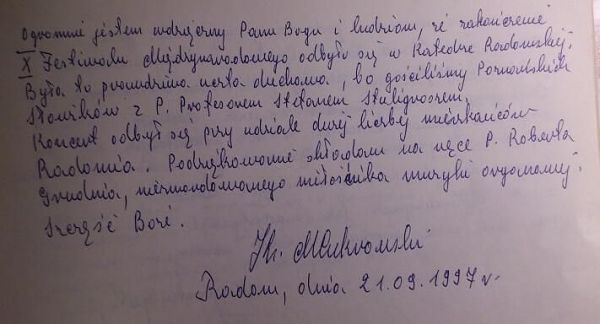 Ogromnie jestem wdzięczny Panu Bogu i ludziom, że zakończenie
X Festiwalu Międzynarodowego odbyło się w Katedrze Radomskiej.
Była to prawdziwa uczta duchowa, bo gościliśmy Poznańskich
Słowików z P. Profesorem Stefanem Stuligroszem.
Koncert odbył się przy udziale dużej liczby mieszkańców
Radomia. Podziękowanie składam na ręce P. Roberta
Grudnia, niezmordowanego miłośnika muzyki organowej.
Szczęść Boże.
Ks.
Radom, dnia 21.09.1997 r.